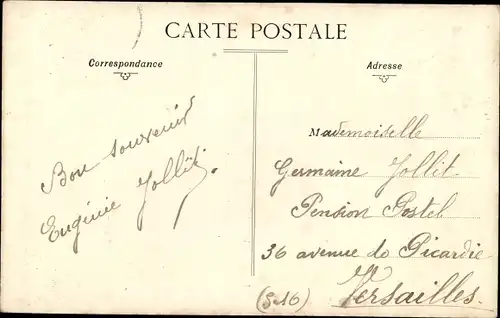 CARTE POSTALE
Correspondance
Adresse
Bon souvenir
Eugénie Jollit.
Mademoiselle
Germaine Jollit.
Pension Postel
36 avenue de Picardie
Versailles.
(S-16)